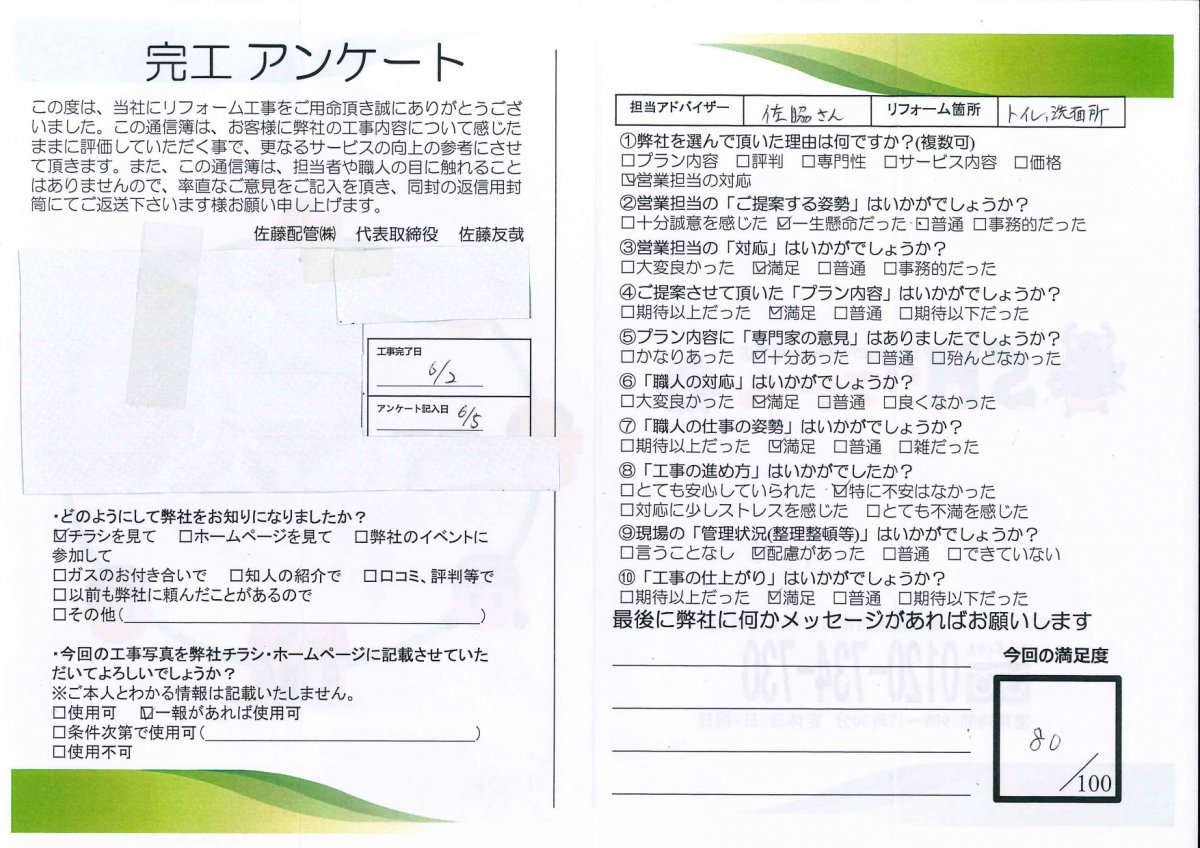 完工 アンケート
この度は、当社にリフォーム工事をご用命頂き誠にありがとうござ
いました。この通信簿は、お客様に弊社の工事内容について感じた
ままに評価していただく事で、更なるサービスの向上の参考にさせ
て頂きます。また、この通信簿は、担当者や職人の目に触れること
はありませんので、率直なご意見をご記入を頂き、同封の返信用封
筒にてご返送下さいます様お願い申し上げます。
佐藤配管㈱ 代表取締役 佐藤友哉
工事完了日
6/2
アンケート記入日 6/5
・どのようにして弊社をお知りになりましたか？
☑チラシを見て □ホームページを見て □弊社のイベントに
参加して
□ガスのお付き合いで □知人の紹介で □口コミ、評判等で
□以前も弊社に頼んだことがあるので
□その他( )
・今回の工事写真を弊社チラシ・ホームページに記載させていた
だいてよろしいでしょうか？
※ご本人とわかる情報は記載いたしません。
□使用可 ☑一報があれば使用可
□条件次第で使用可( )
□使用不可
担当アドバイザー 佐脇さん リフォーム箇所 トイレ、洗面所
①弊社を選んで頂いた理由は何ですか？(複数可)
□プラン内容 □評判 □専門性 □サービス内容 □価格
☑営業担当の対応
②営業担当の「ご提案する姿勢」はいかがでしょうか？
□十分誠意を感じた ☑一生懸命だった □普通 □事務的だった
③営業担当の「対応」はいかがでしょうか？
□大変良かった ☑満足 □普通 □事務的だった
④ご提案させて頂いた「プラン内容」はいかがでしょうか？
□期待以上だった ☑満足 □普通 □期待以下だった
⑤プラン内容に「専門家の意見」はありましたでしょうか？
□かなりあった ☑十分あった □普通 □殆んどなかった
⑥「職人の対応」はいかがでしょうか？
□大変良かった ☑満足 □普通 □良くなかった
⑦「職人の仕事の姿勢」はいかがでしょうか？
□期待以上だった ☑満足 □普通 □雑だった
⑧「工事の進め方」はいかがでしたか？
□とても安心していられた ☑特に不安はなかった
□対応に少しストレスを感じた □とても不満を感じた
⑨現場の「管理状況(整理整頓等)」はいかがでしょうか？
□言うことなし ☑配慮があった □普通 □できていない
⑩「工事の仕上がり」はいかがでしょうか？
□期待以上だった ☑満足 □普通 □期待以下だった
最後に弊社に何かメッセージがあればお願いします
今回の満足度
80
/100